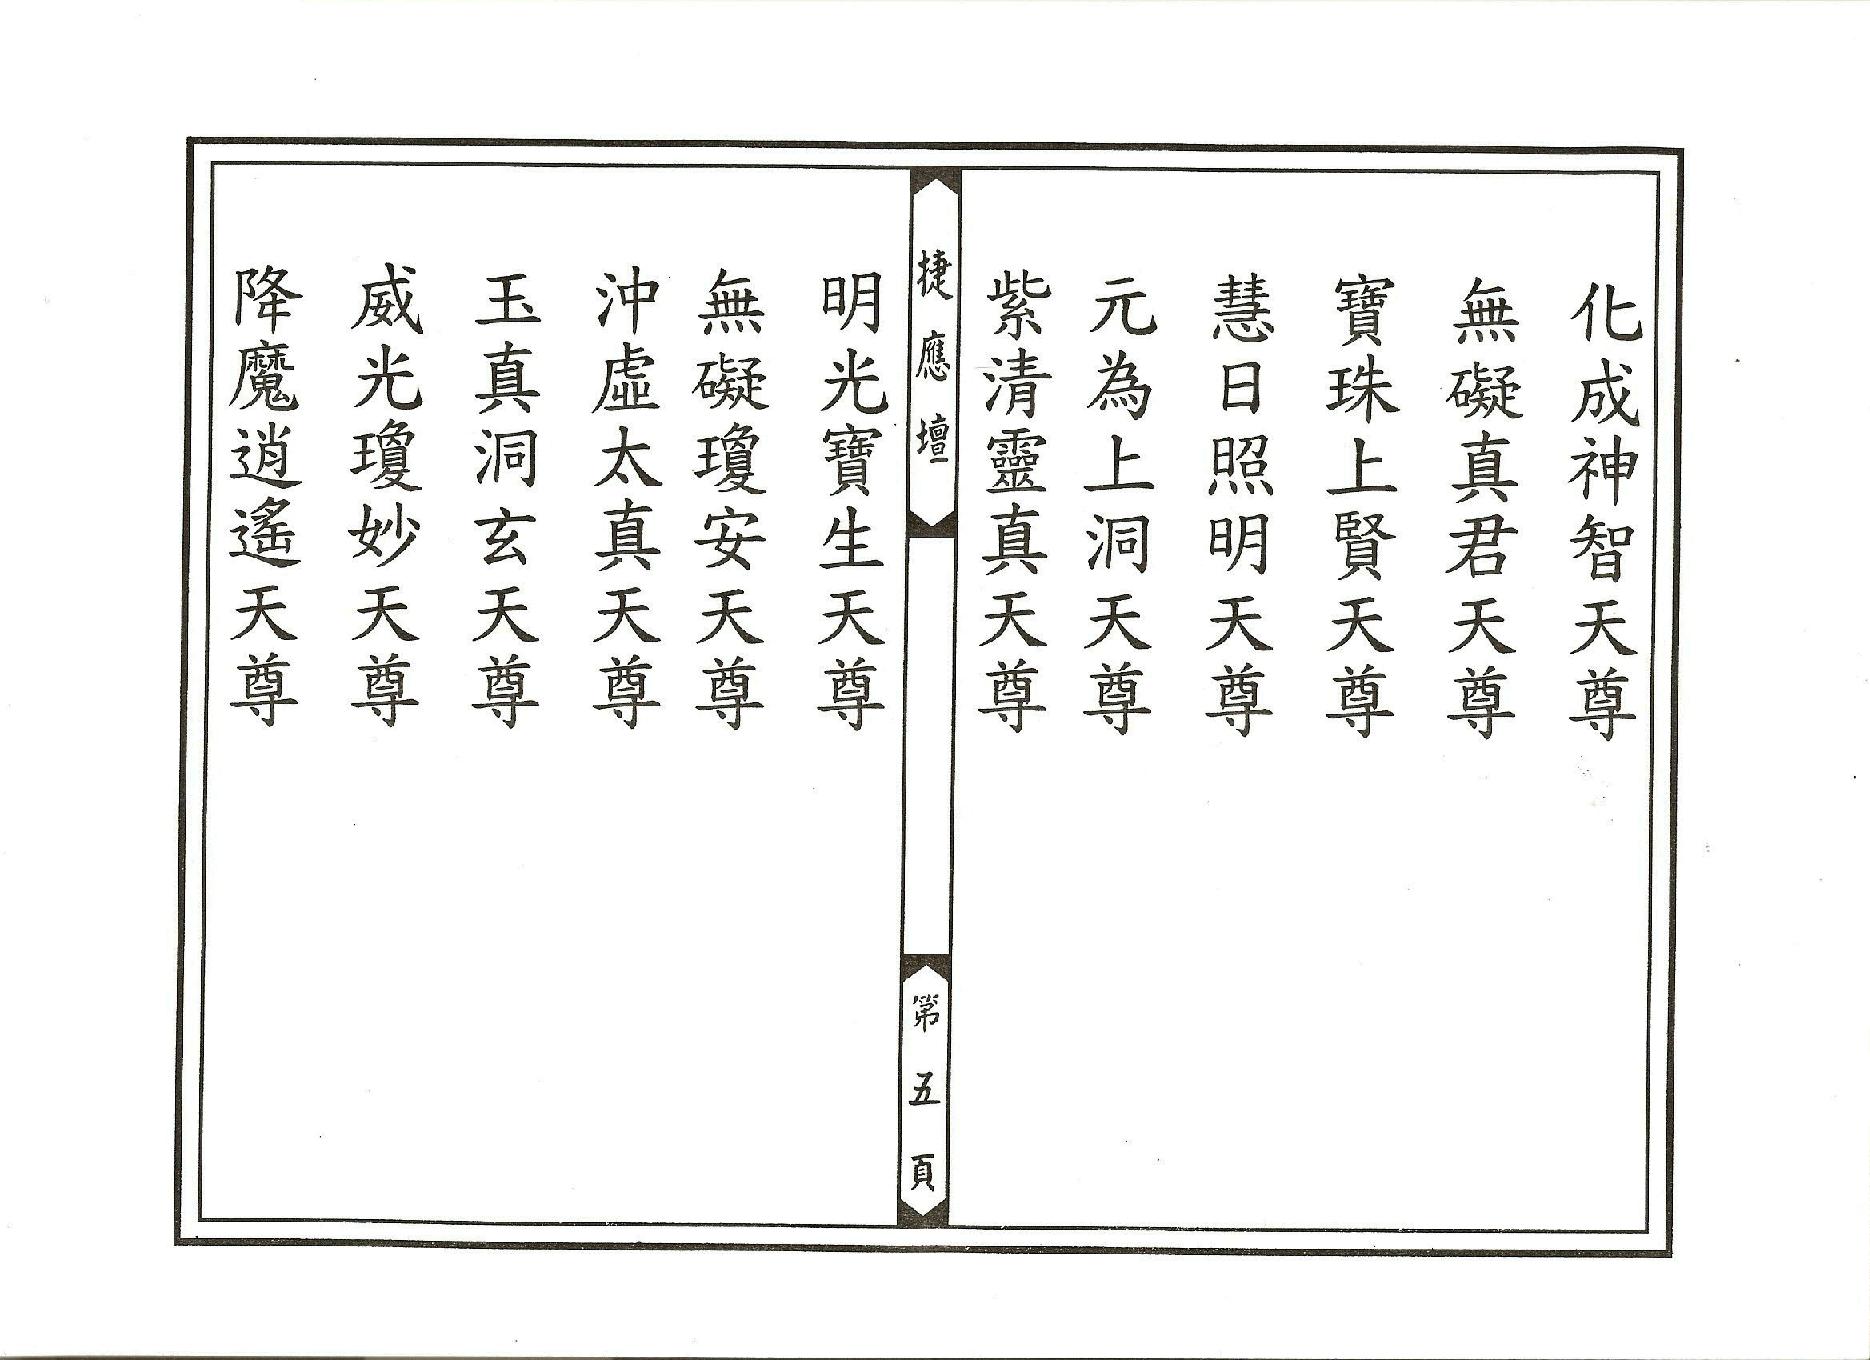 化成神智天尊
無礙真君天尊
寶珠上賢天尊
慧日照明天尊
元為上洞天尊
紫清靈真天尊
捷應壇
第五頁
明光寶生天尊
無礙瓊安天尊
沖虛太真天尊
玉真洞玄天尊
威光瓊妙天尊
降魔逍遙天尊